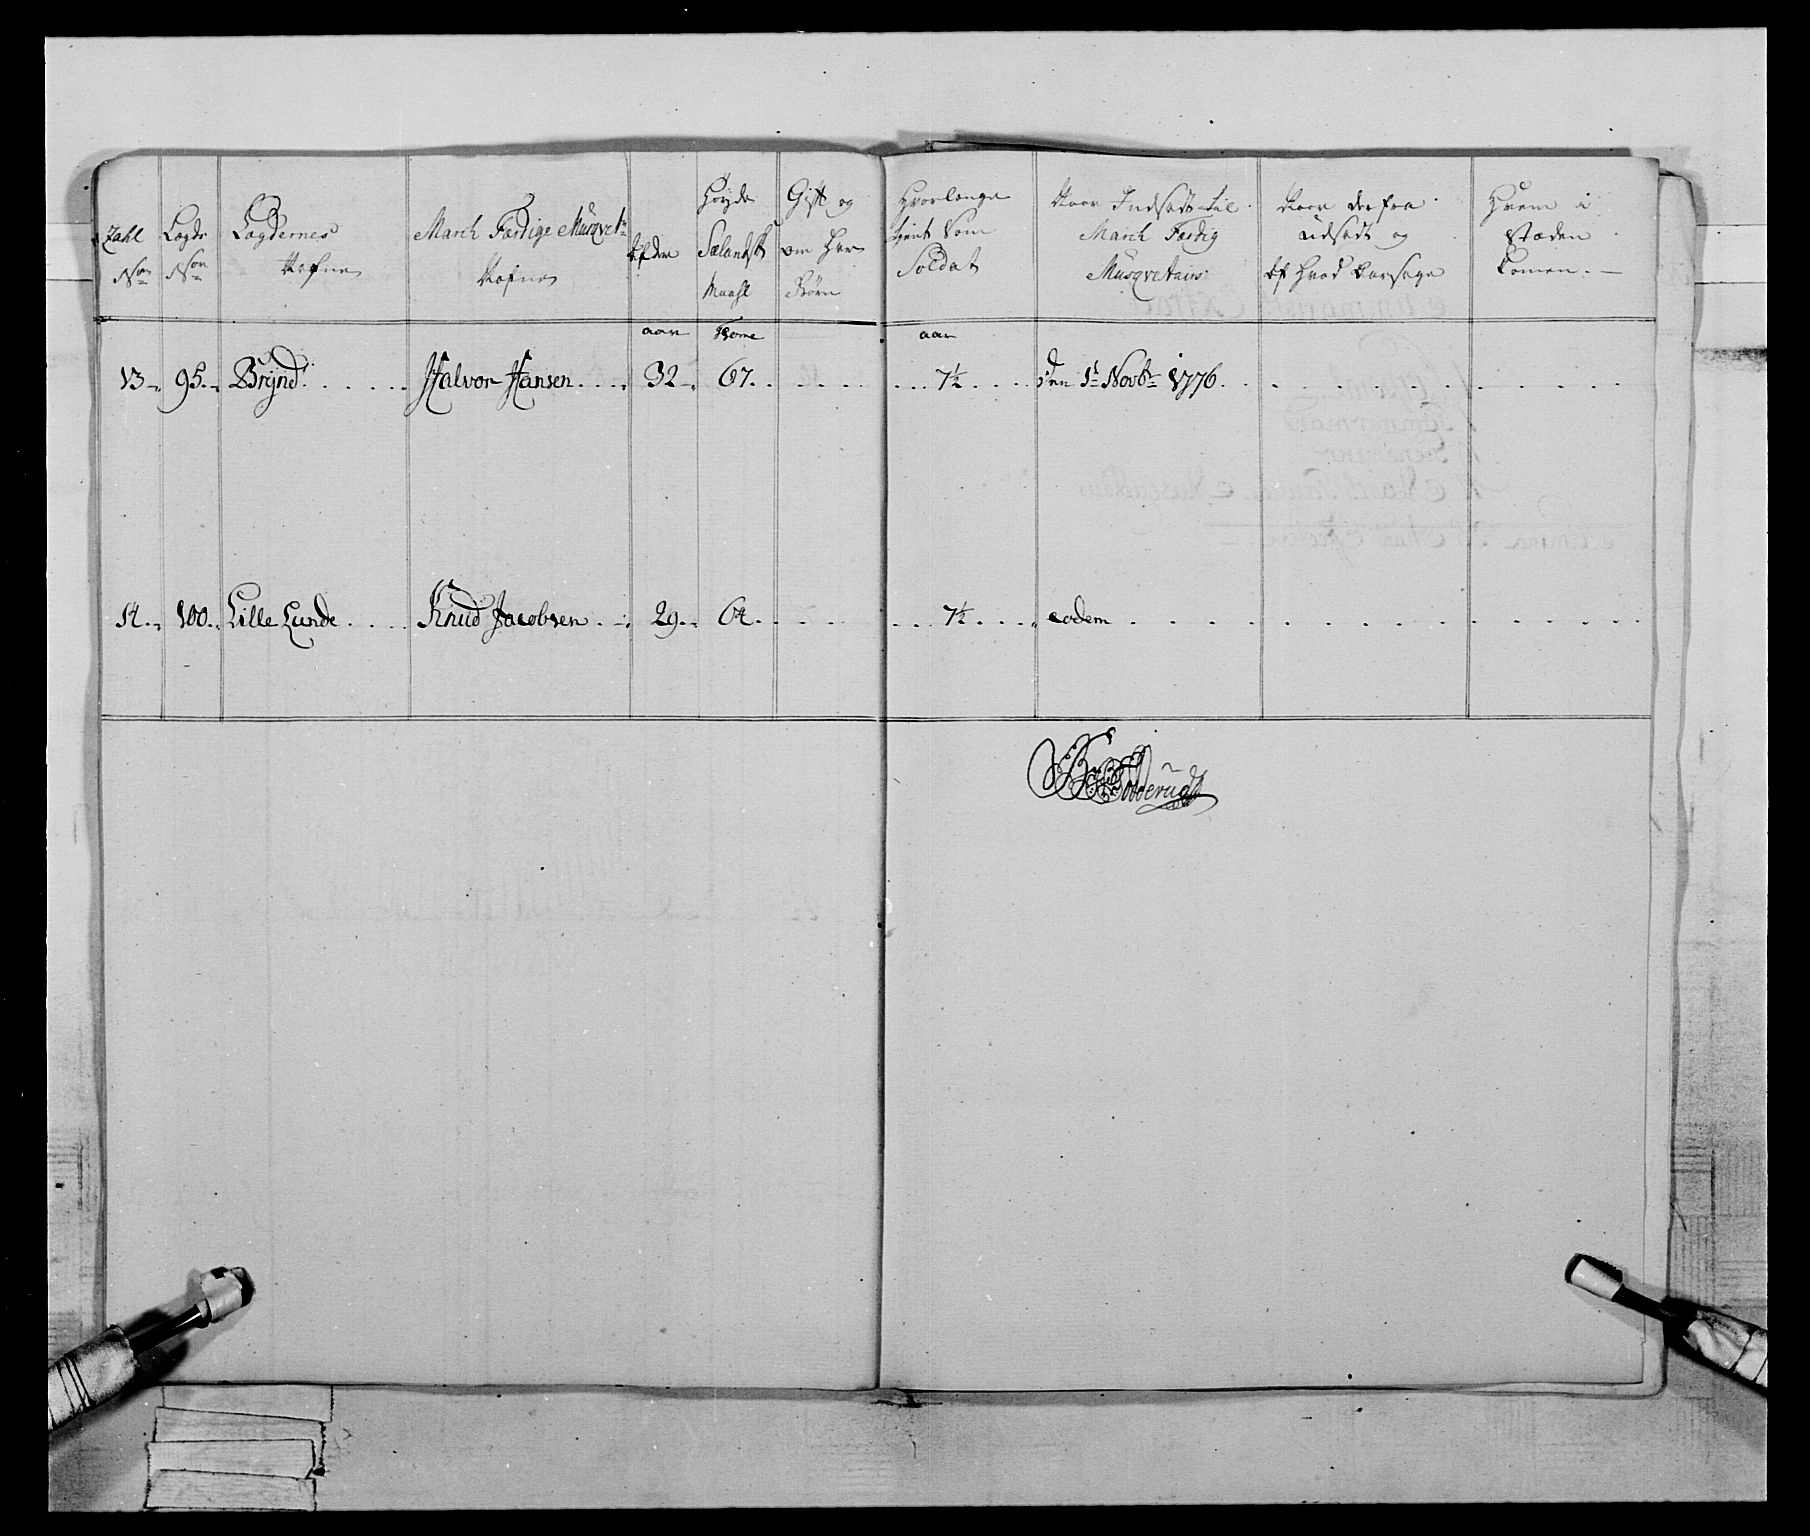 Zahl No
Lægds No
Lægdernes Nafne
March Færdige Musqvet. Nafne
Alder
Høyde Sælandsk Maahl
Gift og om Har Børn
Hvorlænge tient som Soldat
Naar Indsadt til March Færdig Musqvetairs
Naar derfra udsadt og af Hvad Aarsage
Hvem i stæden komen. —
aar Tome aar
13 95 Brÿnd Halvor Hansen 32 67 7½ den 1t Novbr 1776
14 100 Lille Lunde Knud Jacobsen 29 64 7½ eodem